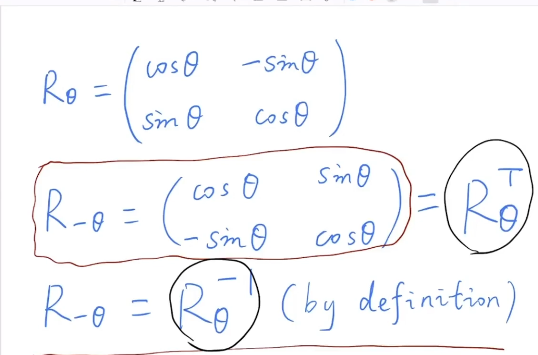 R_θ = ( cos θ   -sin θ
sin θ   cos θ )
R_-θ = ( cos θ   sin θ
- sin θ   cos θ ) = R_θ^T
R_-θ = R_θ^-1 (by definition)